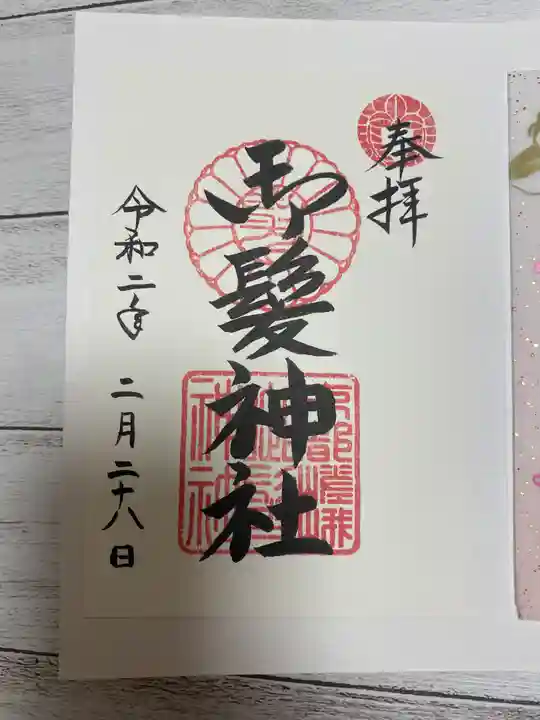 奉拝
御髪神社
令和二年 二月二十八日